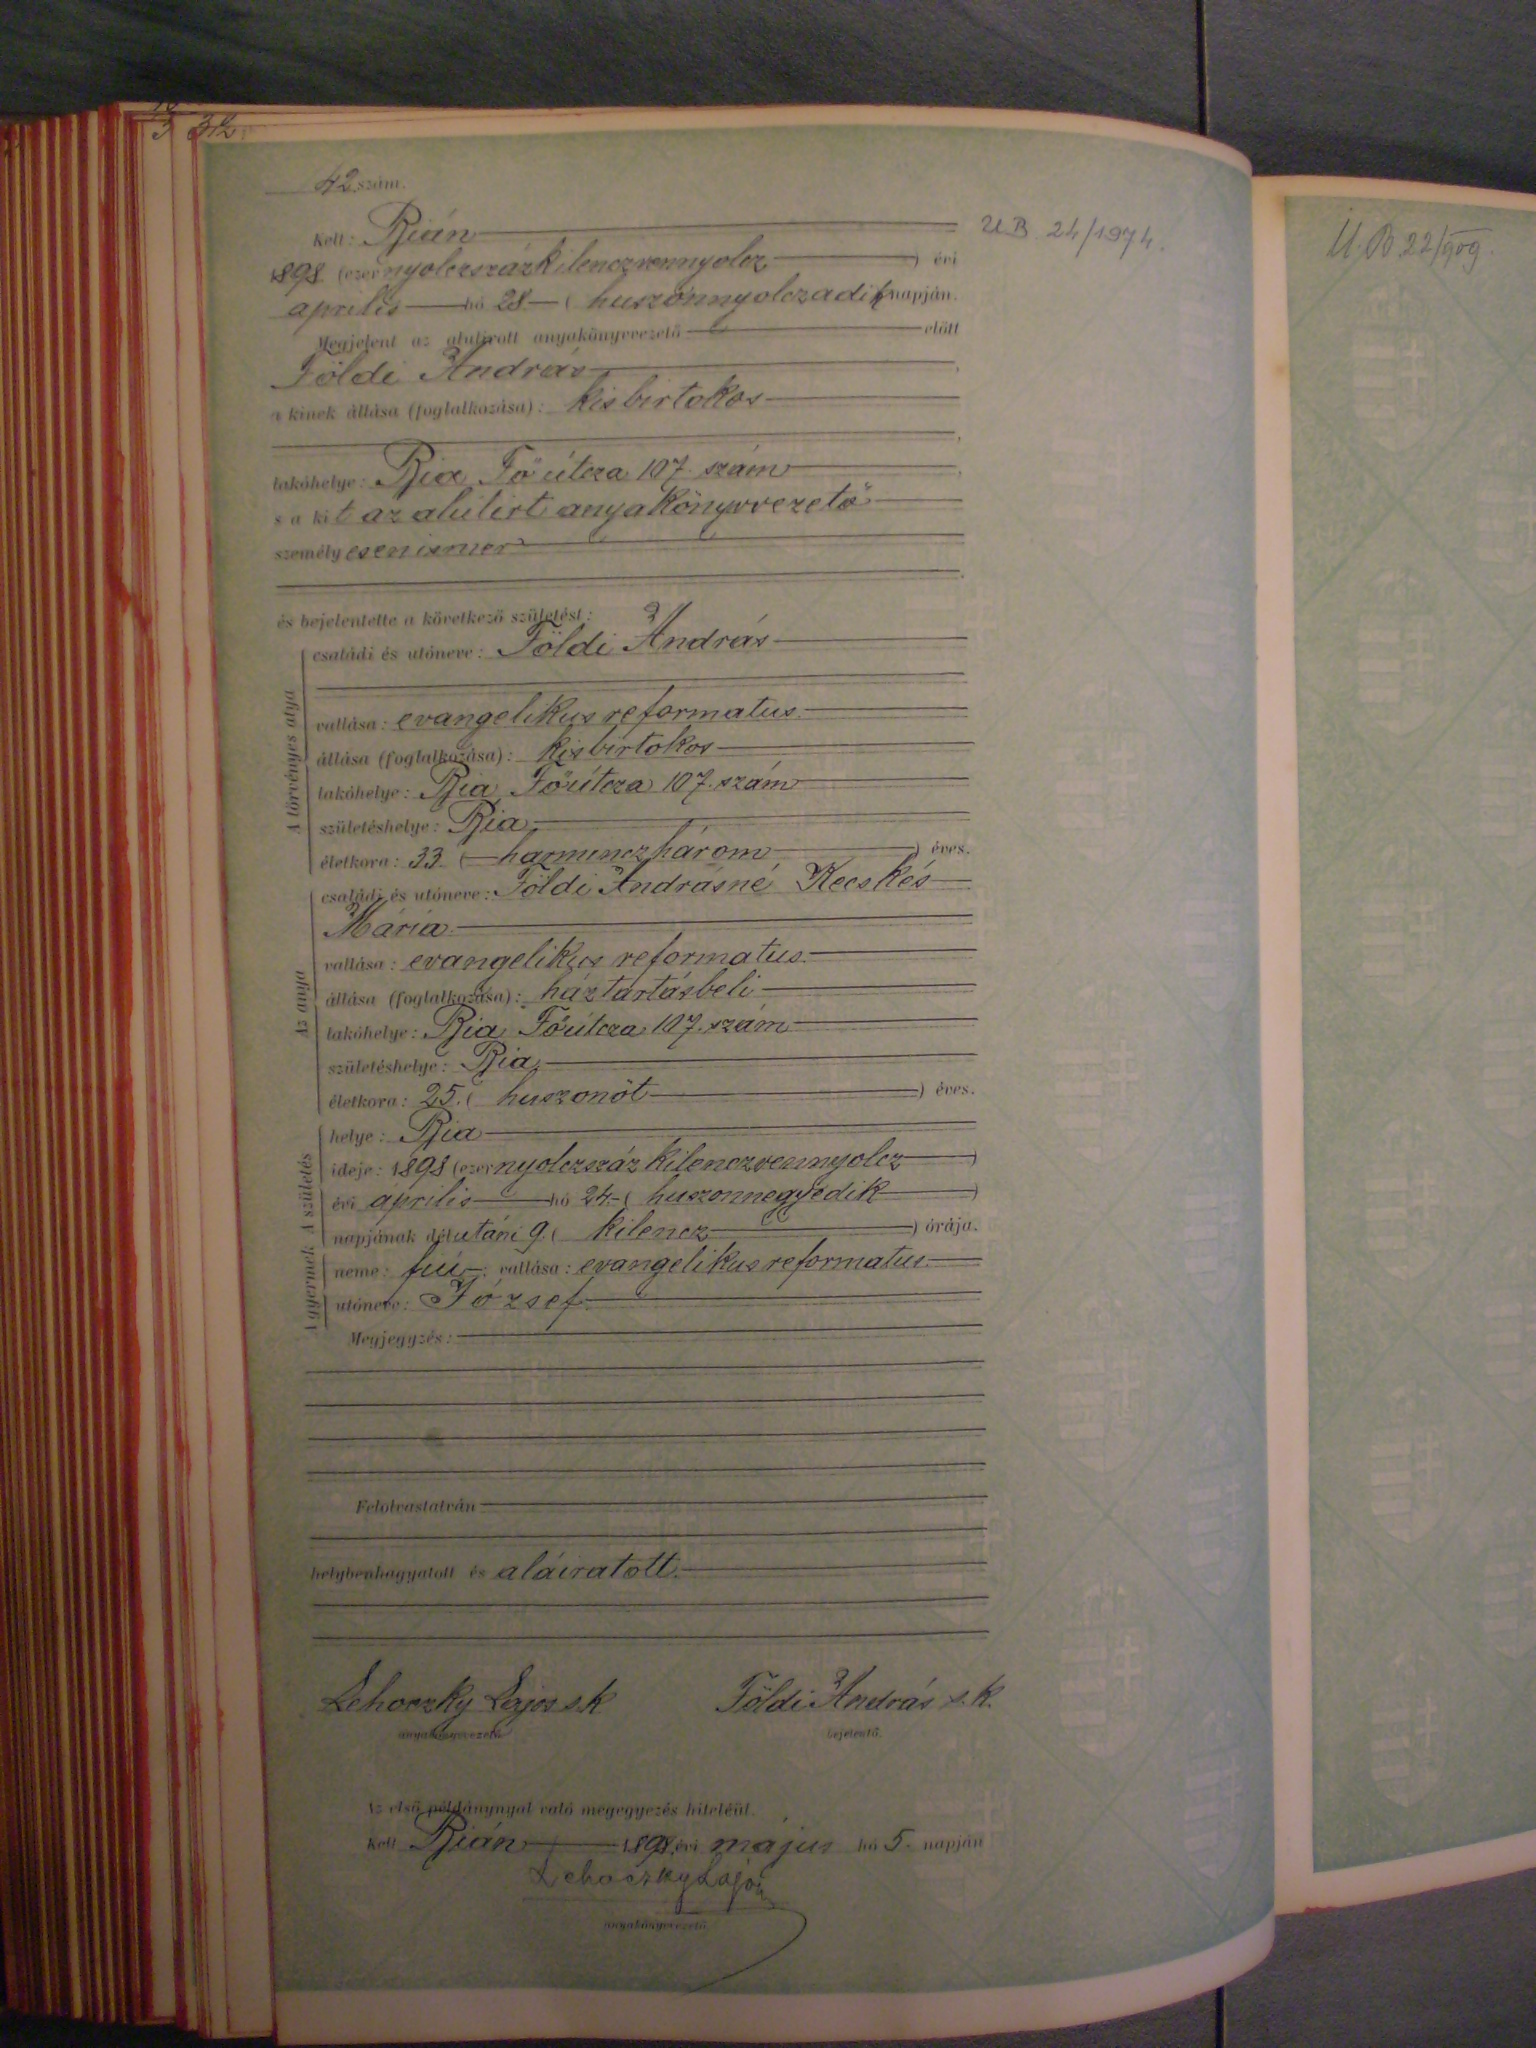 42. szám.
Kelt: Bián
UB 24/1974.
1898. (ezer nyolczszázkilenczvennyolcz) évi
április hó 28 ( huszonnyolczadik napján.
Megjelent az alulirott anyakönyvvezető előtt
Földi András,
a kinek állása (foglalkozása): kisbirtokos
lakóhelye: Bia Főútcza 107. szám,
s a kit az alulirt anyakönyvvezető
személyesen ismer.
és bejelentette a következő születést:
A törvényes atya
családi és utóneve: Földi András
vallása: evangelikus reformatus.
állása (foglalkozása): kisbirtokos
lakóhelye: Bia Főútcza 107. szám
születéshelye: Bia
életkora: 33. ( harminczhárom ) éves.
Az anya
családi és utóneve: Földi Andrásné Kecskés
Mária.
vallása: evangelikus reformatus.
állása (foglalkozása): háztartásbeli
lakóhelye: Bia Főútcza 107. szám
születéshelye: Bia.
életkora: 25. ( huszonöt ) éves.
A születés
helye: Bia
ideje: 1898 (ezer nyolczszáz kilenczvennyolcz )
évi április hó 24. ( huszonnegyedik )
napjának délutáni 9. ( kilencz ) órája.
A gyermek
neme: fiú; vallása: evangelikus reformatus.
utóneve: József.
Megjegyzés:
Felolvastatván
helybenhagyatott és aláiratott.
Lehoczky Lajos s.k
Földi András s.k.
anyakönyvvezető.
bejelentő.
Az első példánynyal való megegyezés hiteléül.
Kelt Bián 1898. évi május hó 5. napján
Lehoczky Lajos
anyakönyvvezető.
U.B 22/909.